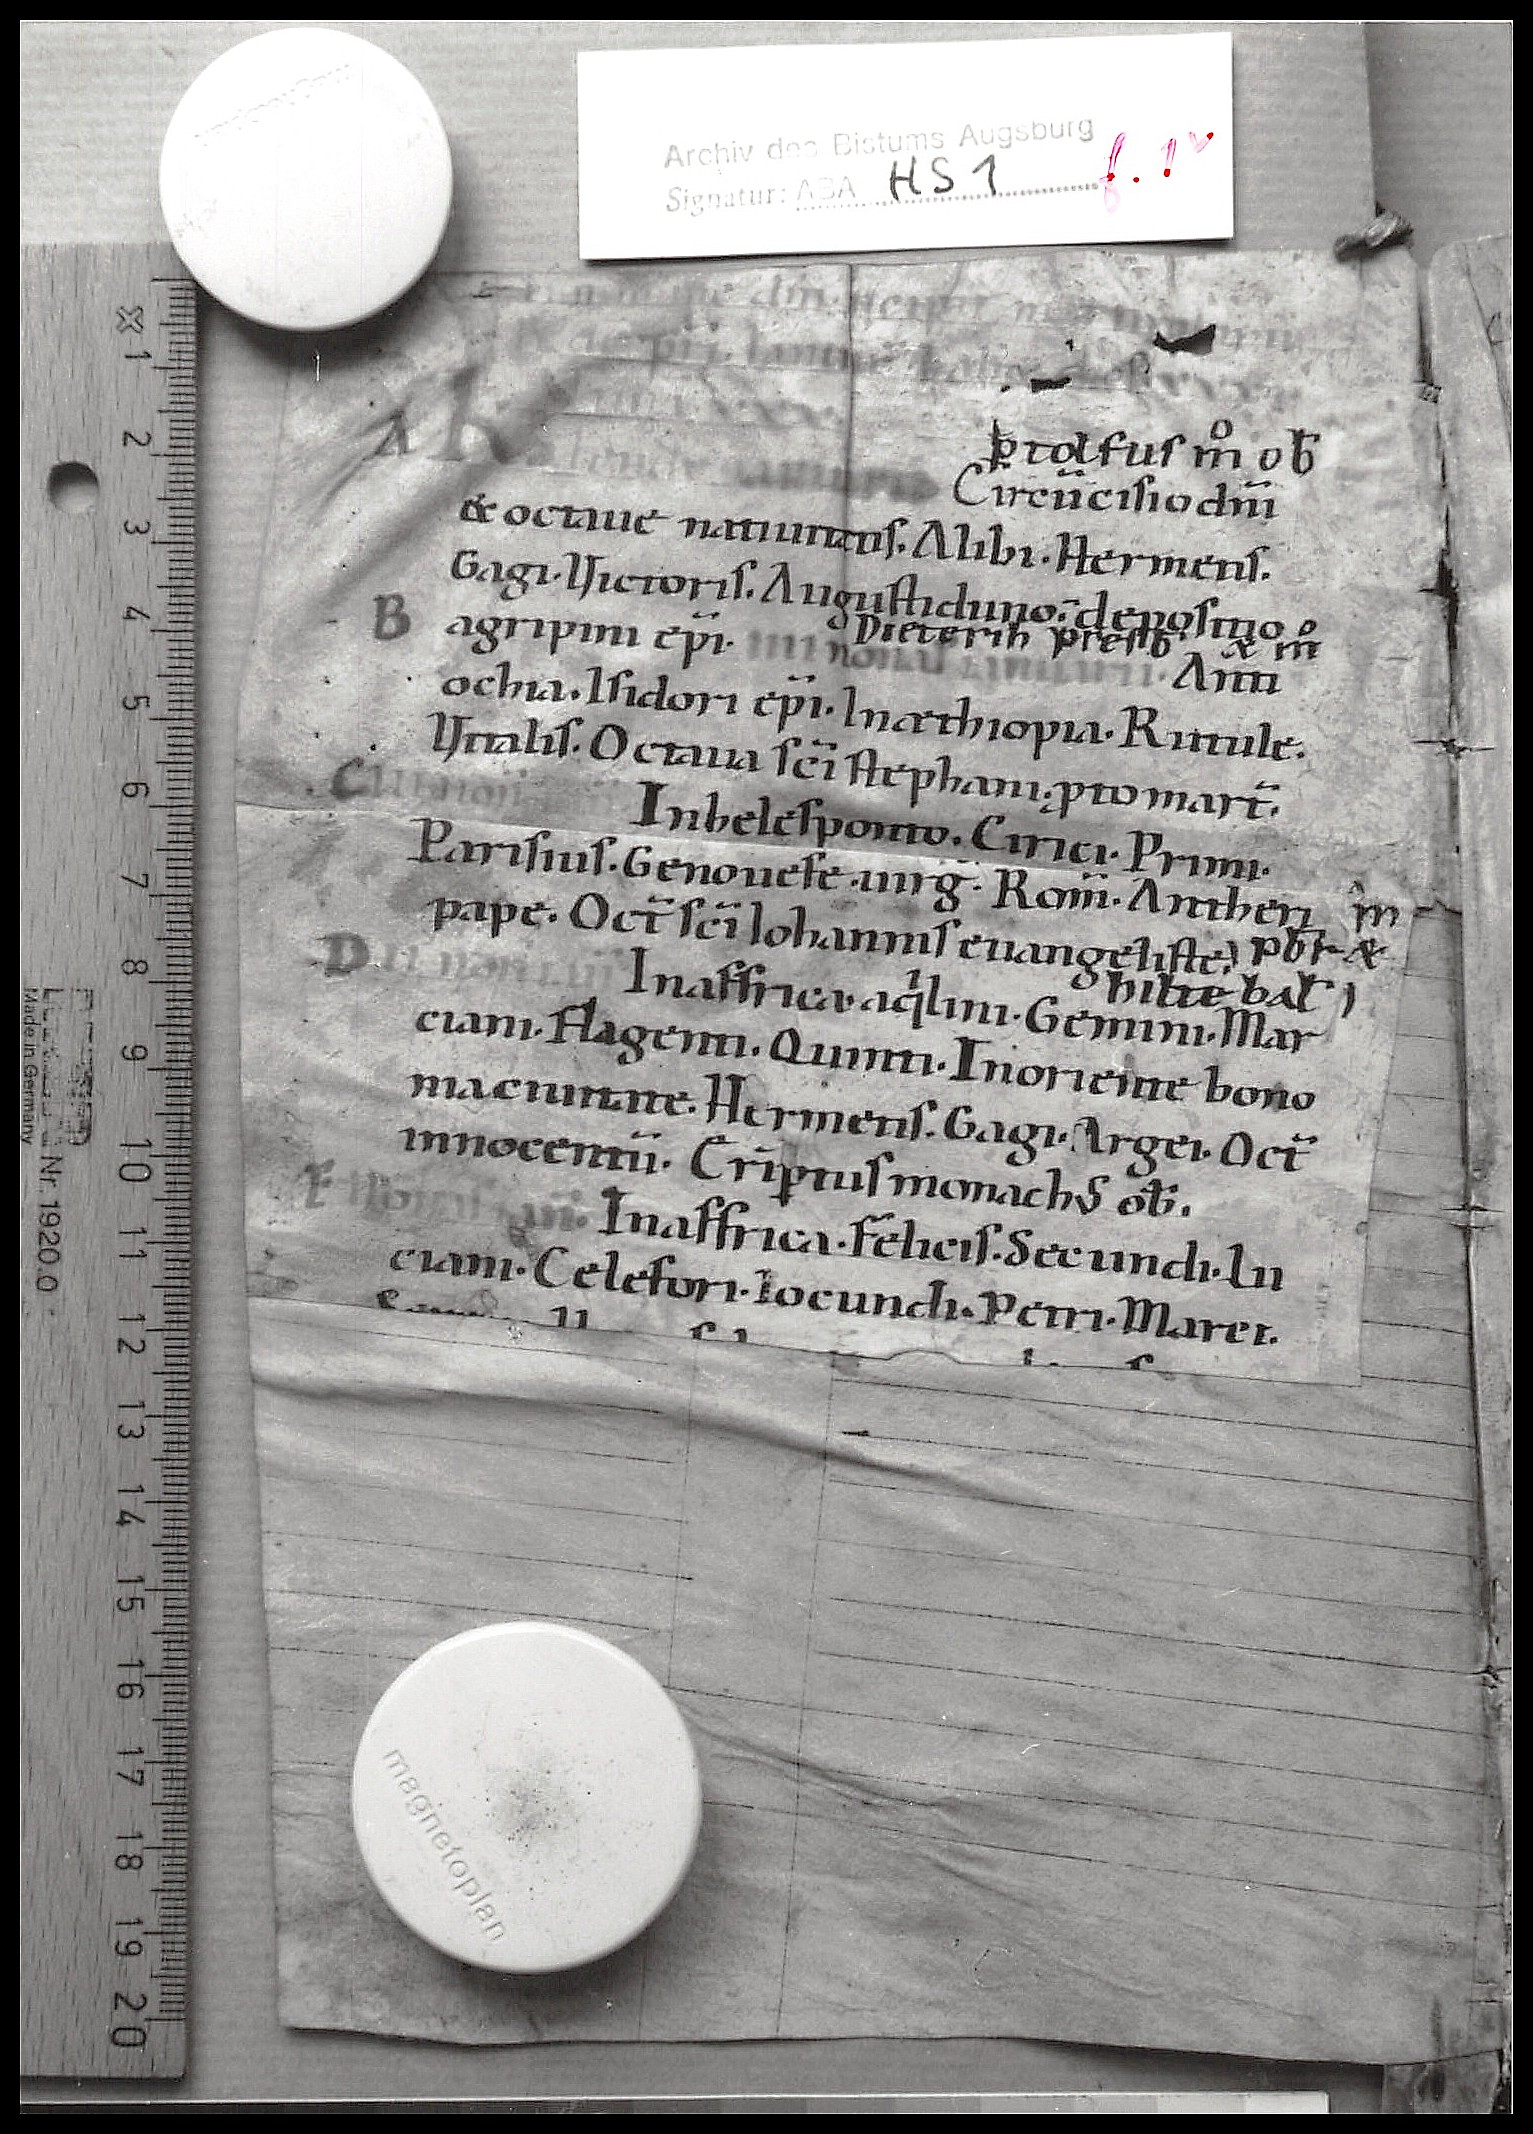 Archiv des Bistums Augsburg
Signatur: ABA HS 1 f. 1v
A K
m̊ ob
Circūcisio dn̄i
& octaue natiuitatis. Alibi. Hermetis.
Gagi. Victoris. Augustiduno. depositio
B agripini ep̄i. Dieterih presb. & m̊
nonas ianuarii. Anti
ochia. Isidori ep̄i. In æthiopia. Rutule.
Vitalis. Octaua sc̄i stephani. ptomart̄.
C In helesponto. Cirici. Primi.
Parisius. Genouefe uirḡ. Rom̄. Antheri
pape. Oct̄ sc̄i Iohannis euangeliste. m̊ pbr &
D hilte bat
In affrica. aqilini. Gemini. Mar
ciani. Flagenti. Quinti. In oriente bono
nia ciuitate. Hermetis. Gagi. Argei. Oct̄
innocentū. Criptius monachus ob̄.
E In affrica. Felicis. Secundi. Lu
ciani. Celesori. Iocundi. Petri. Marei.
1
2
3
4
5
6
7
8
9
10
11
12
13
14
15
16
17
18
19
20
Nr. 1920.0
Made in Germany
magnetoplan